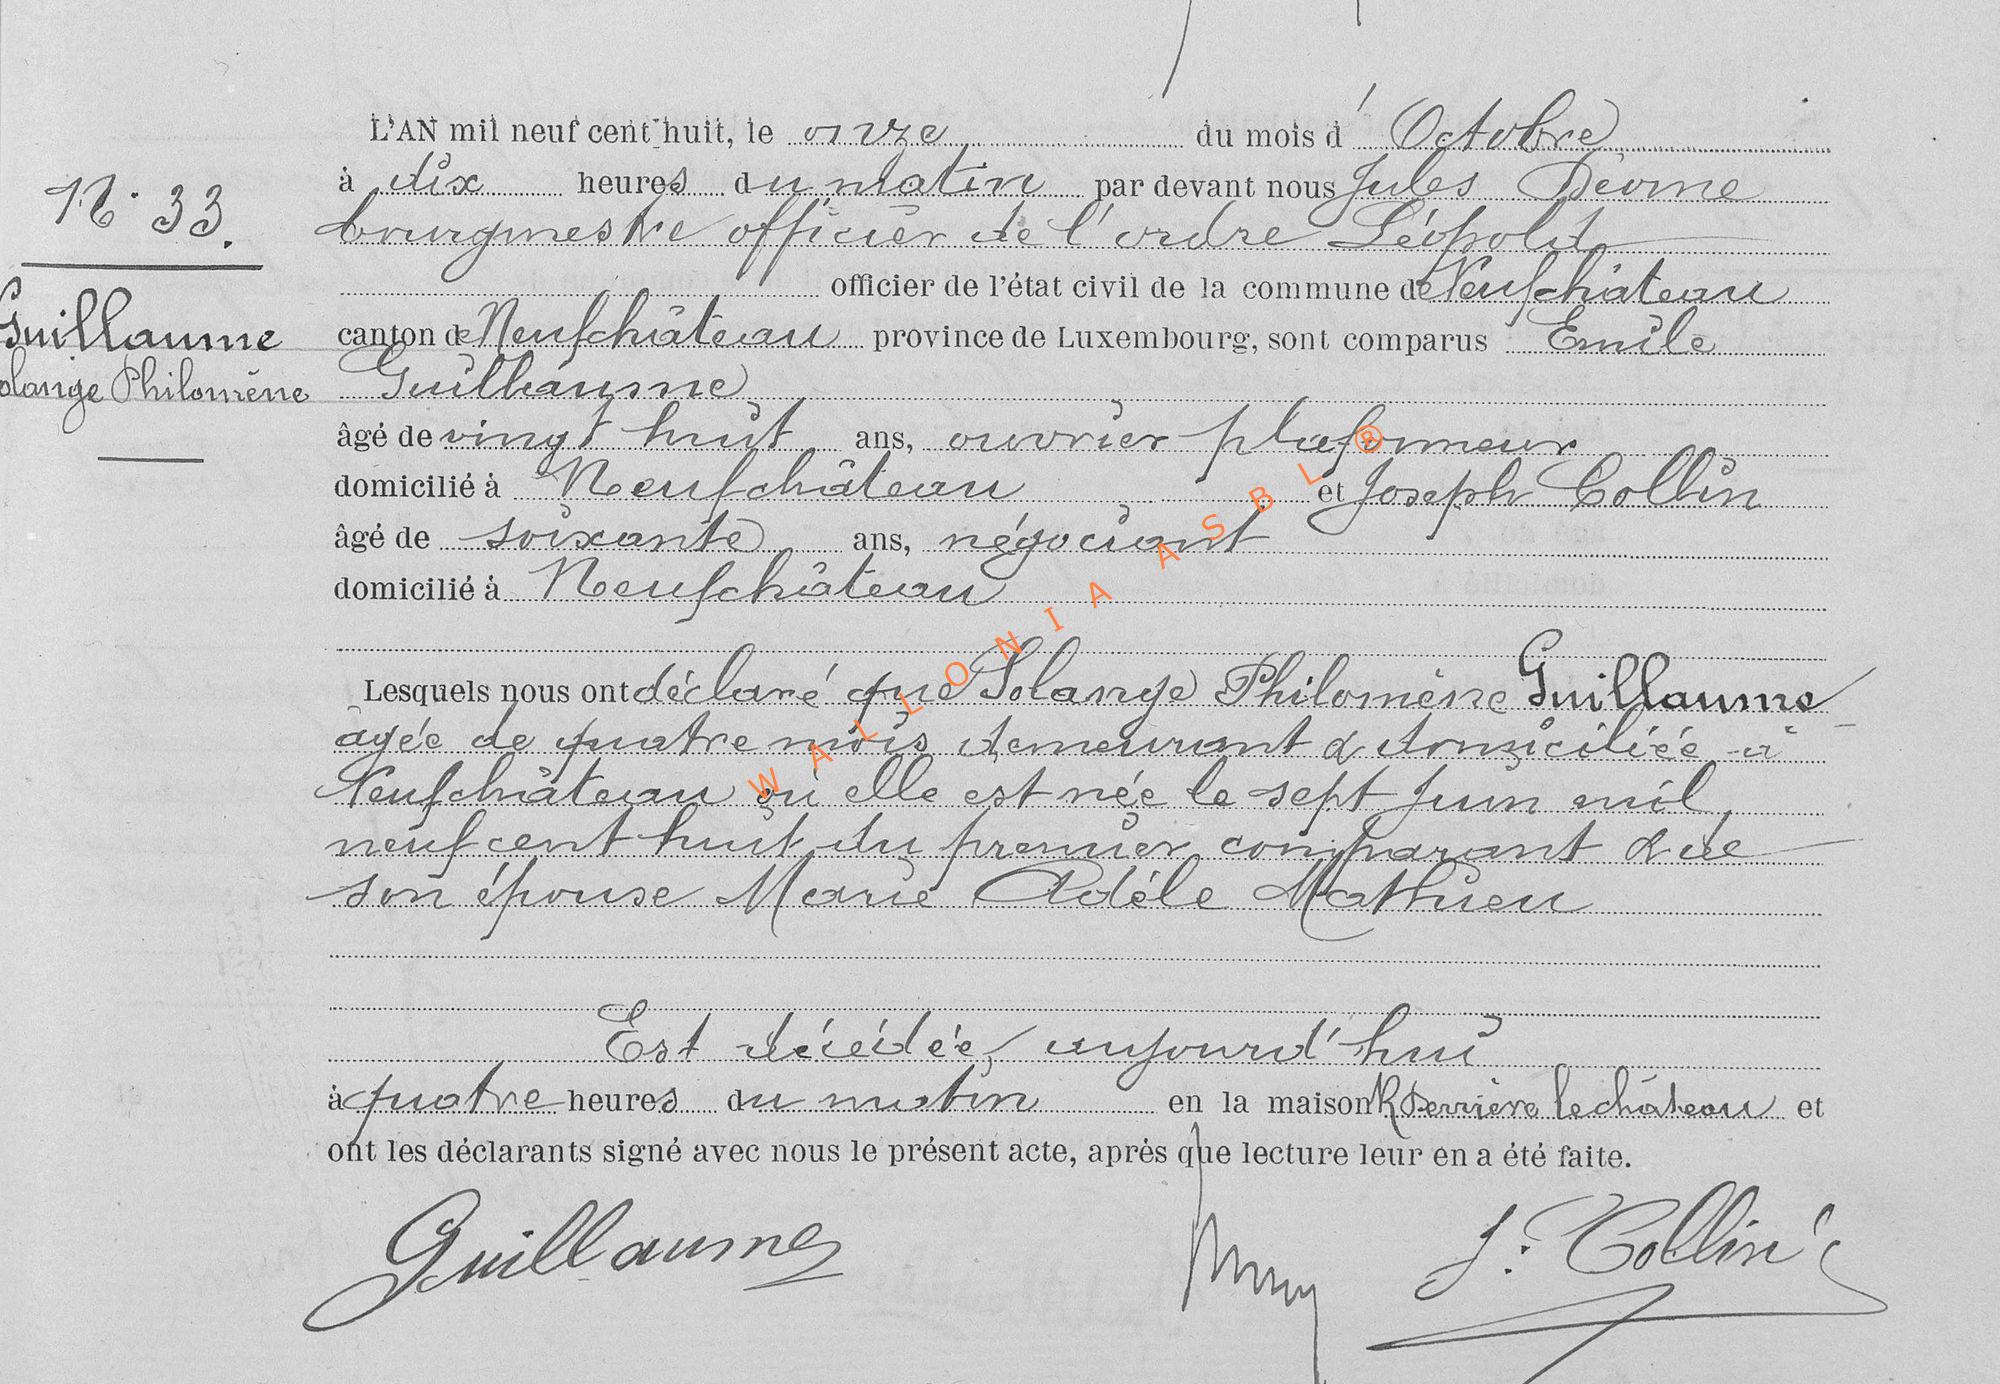 L'AN mil neuf cent huit, le onze du mois d' Octobre
à dix heures du matin par devant nous Jules
N. 33.
bourgmestre officier de l'ordre Léopold
officier de l'état civil de la commune de Neufchâteau
Guillaume
canton de Neufchâteau province de Luxembourg, sont comparus Emile
olange Philomène
Guillaume
âgé de vingt huit ans, ouvrier plafonneur
domicilié à Neufchâteau et Joseph Collin
âgé de soixante ans, négociant
domicilié à Neufchâteau
Lesquels nous ont déclaré que Solange Philomène Guillaume
âgée de quatre mois demeurant & domiciliée à
Neufchâteau où elle est née le sept Juin mil
neuf cent huit du premier comparant & de
son épouse Marie Adèle Mathieu
Est décédée aujourd'hui
à quatre heures du matin en la maison R Derrière le château et
ont les déclarants signé avec nous le présent acte, après que lecture leur en a été faite.
Guillaume J. Collin
WALLONIA ASBL ®